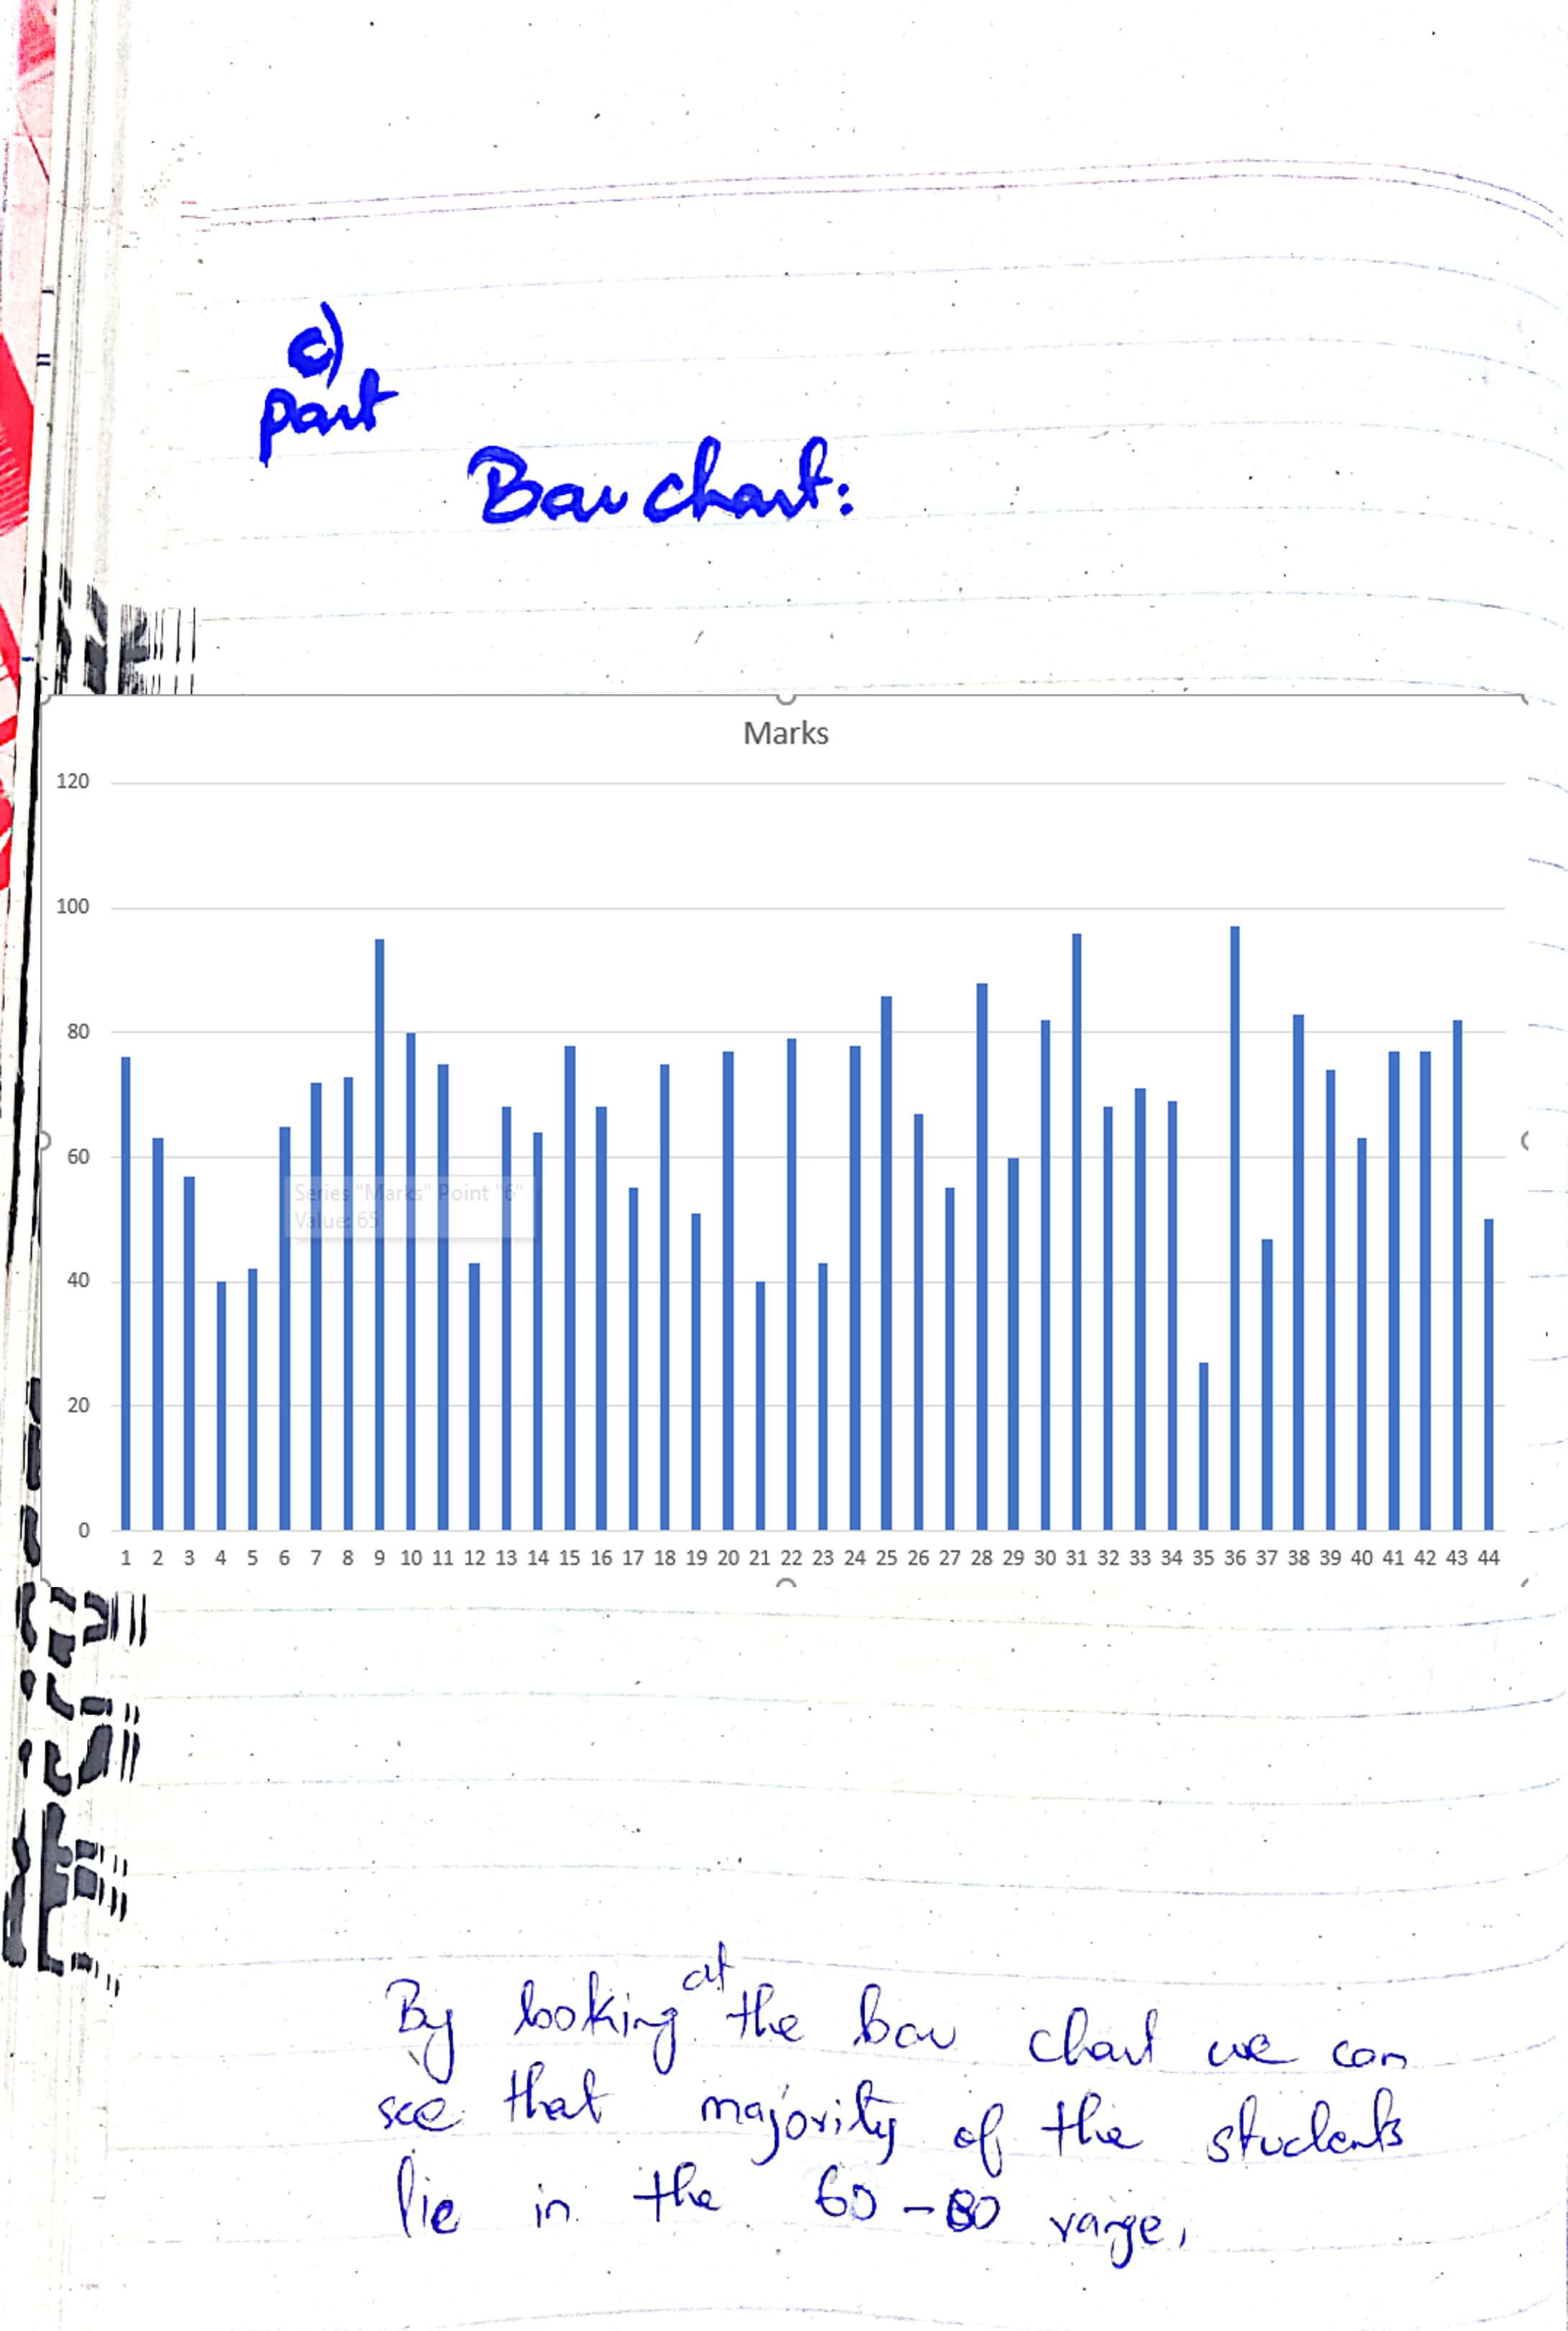 c)
part
Bar chart:
Marks
120
100
80
60
Series "Marks" Point "6"
Value: 65
40
20
0
1 2 3 4 5 6 7 8 9 10 11 12 13 14 15 16 17 18 19 20 21 22 23 24 25 26 27 28 29 30 31 32 33 34 35 36 37 38 39 40 41 42 43 44
By looking at the bar chart we can
see that majority of the students
lie in the 60-80 range.